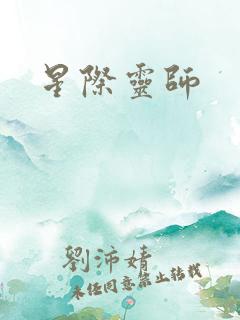 星際靈師
劉沛婧
未经同意禁止转载